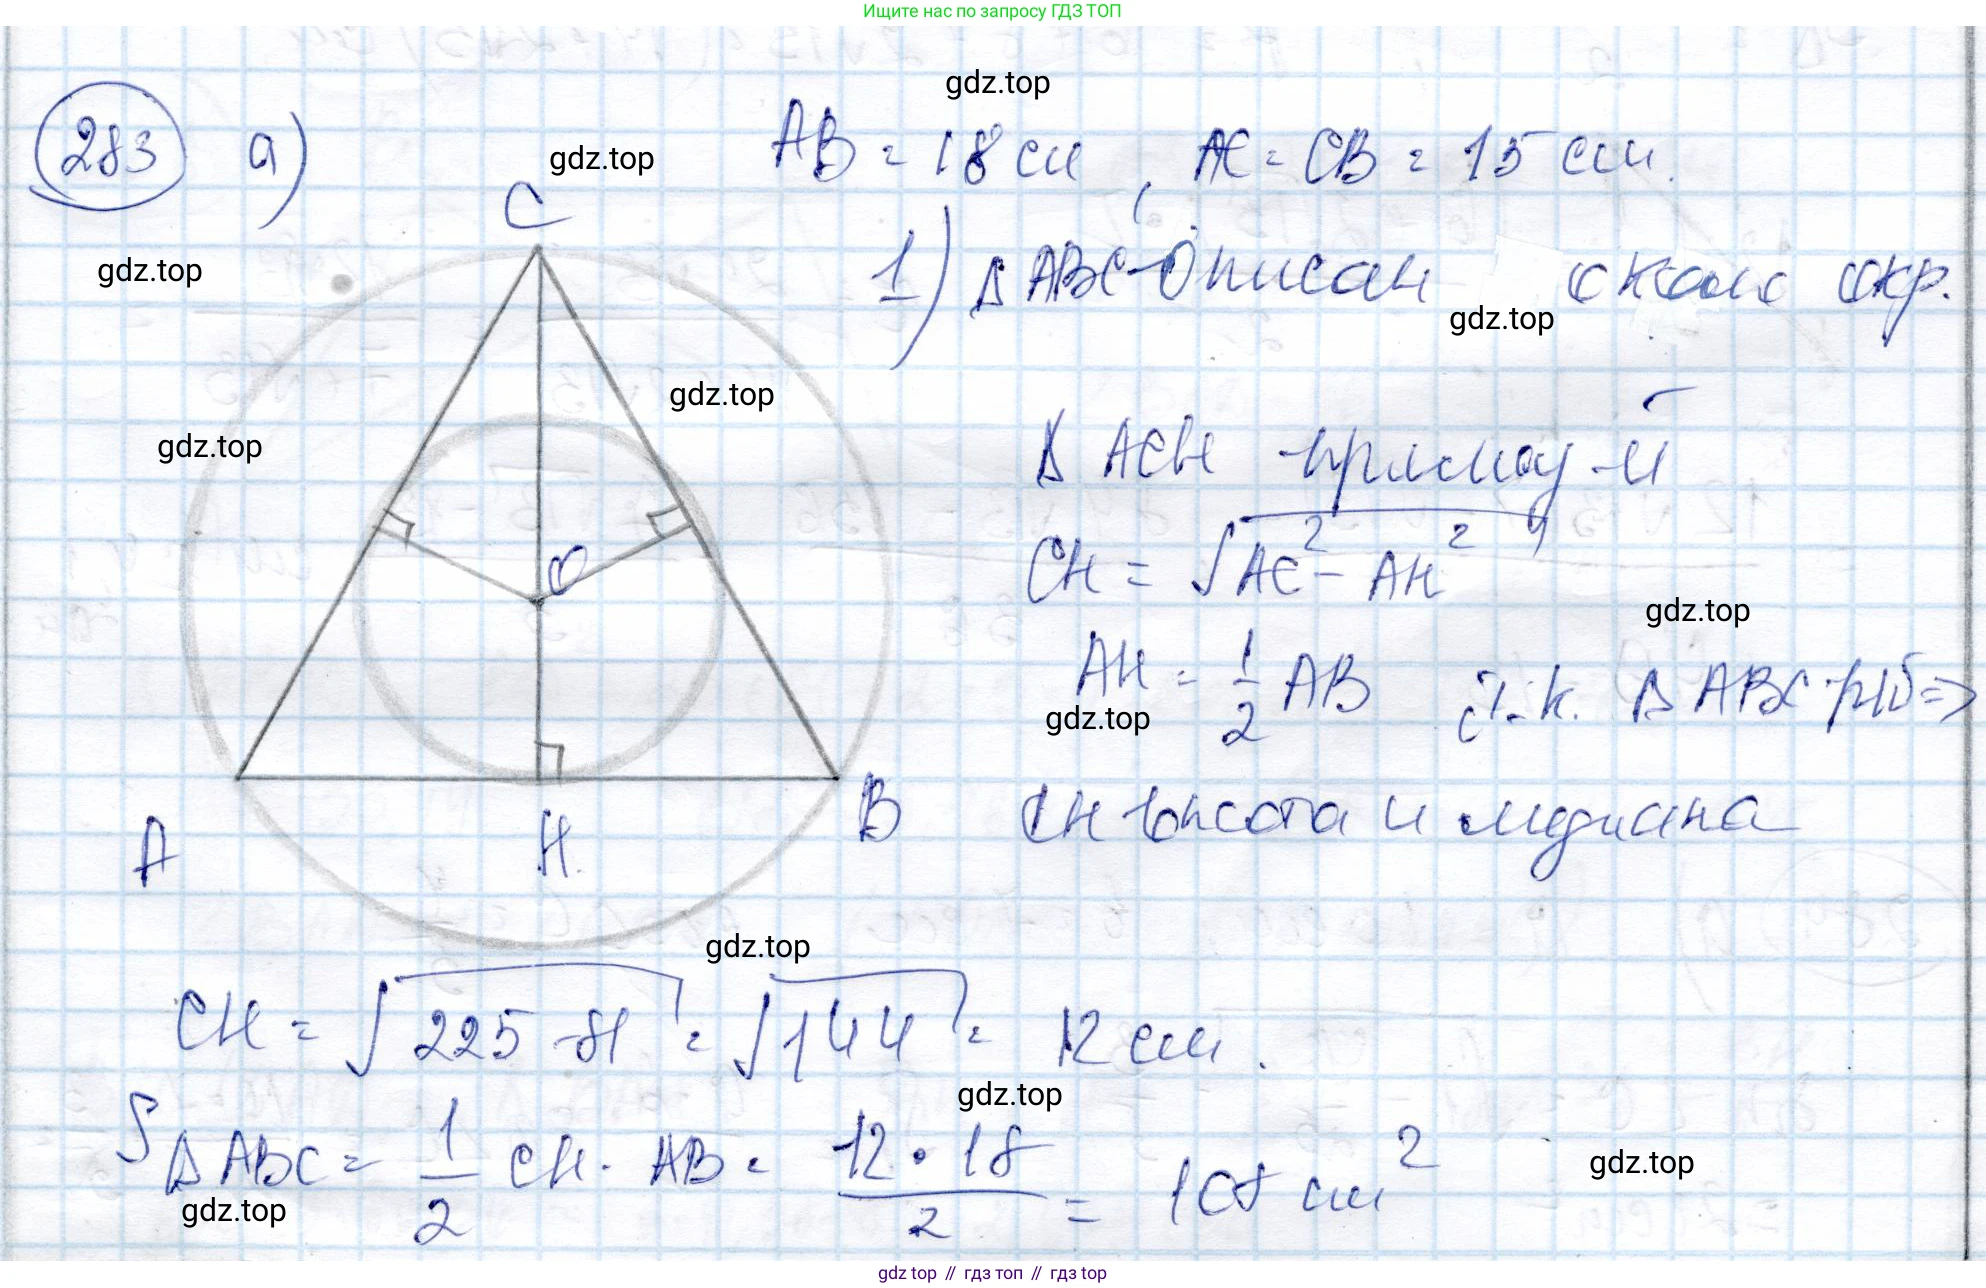 Ищите нас по запросу ГДЗ ТОП
gdz.top
283 а) AB = 18 см, AC = CB = 15 см.
gdz.top
C
1) Δ ABC - Описан около окр.
gdz.top
gdz.top
gdz.top
gdz.top
Δ ACH прямоуг-й
O
CH = √AC² - AH²
gdz.top
AH = 1/2 AB т.к. Δ ABC р/б =>
gdz.top
A H. B CH высота и медиана
gdz.top
CH = √225-81 = √144 = 12 см.
gdz.top
S Δ ABC = 1/2 CH · AB = 12 · 18 / 2 = 108 см²
gdz.top
gdz.top
gdz top // гдз топ // гдз top